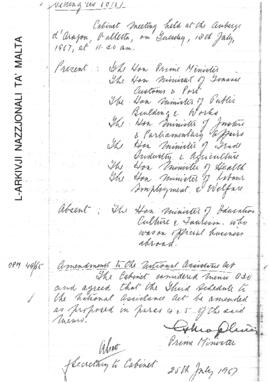 L-ARKIVJI NAZZJONALI TA' MALTA
Cabinet Meeting held at the Auberge
d'Aragon, Valletta, on Tuesday, 18th July,
1967, at 11.20 am.
Present : The Hon Prime Minister
The Hon Minister of Finance
Customs & Port
The Hon Minister of Public
Building & Works
The Hon Minister of Justice
& Parliamentary Affairs
The Hon Minister of Trade
Industry & Agriculture
The Hon Minister of Health
The Hon Minister of Labour
Employment & Welfare
Absent : The Hon Minister of Education
Culture & Tourism who
was on official business
abroad.
OPM Amendment to the National Assistance Act
The Cabinet considered memo
and agreed that the Third Schedule to
the National Assistance Act be amended
as proposed in paras 4 & 5 of the said
memo.
Prime Minister
Secretary to Cabinet
25th July 1967